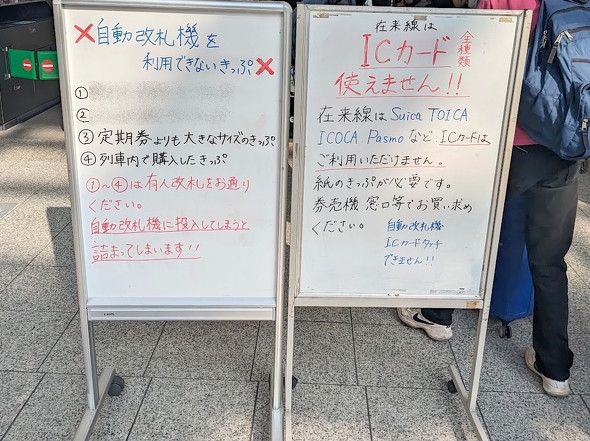 ×自動改札機を
利用できないきっぷ×
①
②
③定期券よりも大きなサイズのきっぷ
④列車内で購入したきっぷ
①~④は有人改札をお通り
ください。
自動改札機に投入してしまうと
詰まってしまいます!!
在来線は
ICカード 全種類
使えません!!
在来線はSuica TOICA
ICOCA Pasmoなど ICカードは
ご利用いただけません。
紙のきっぷが必要です。
券売機 窓口等でお買い求め
ください。
自動改札機
ICカードタッチ
できません!!